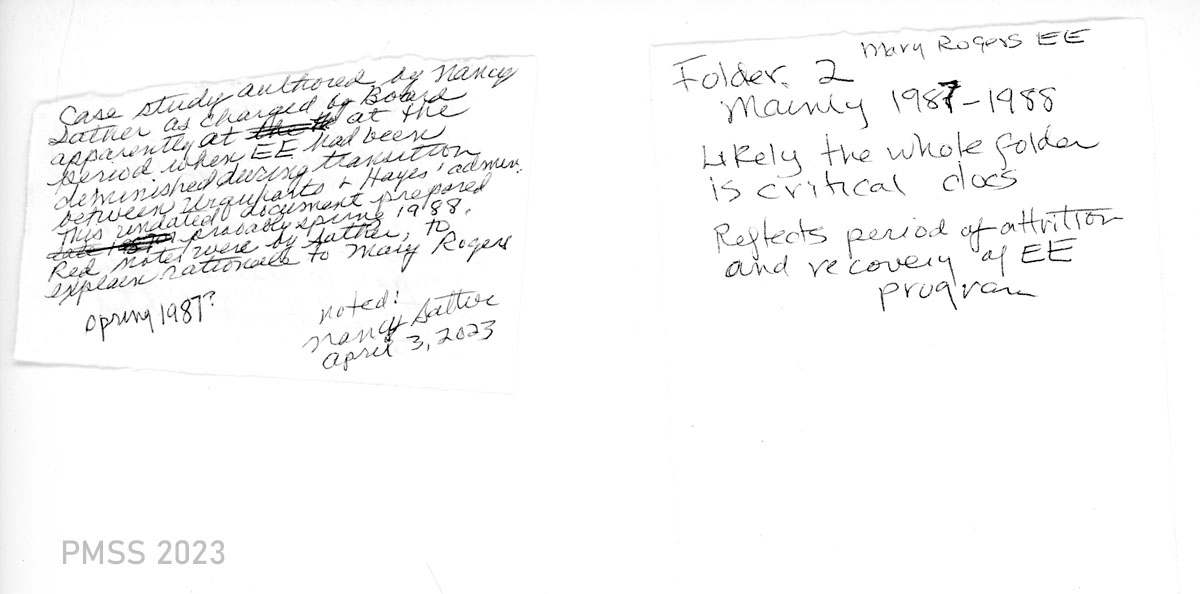 Case study authored by Nancy
Sather as charged by Board
apparently at the at the
period when EE had been
deminished during transition
between Urquharts + Hayes' admin.
This undated document prepared
probably spring 1988.
Red notes were by Sather, to
explain rationale to Mary Rogers
spring 1987?
noted:
Nancy Sather
April 3, 2023
Mary Rogers EE
Folder. 2
Mainly 1987-1988
Likely the whole folder
is critical docs
Reflects period of attrition
and recovery of EE
program
PMSS 2023